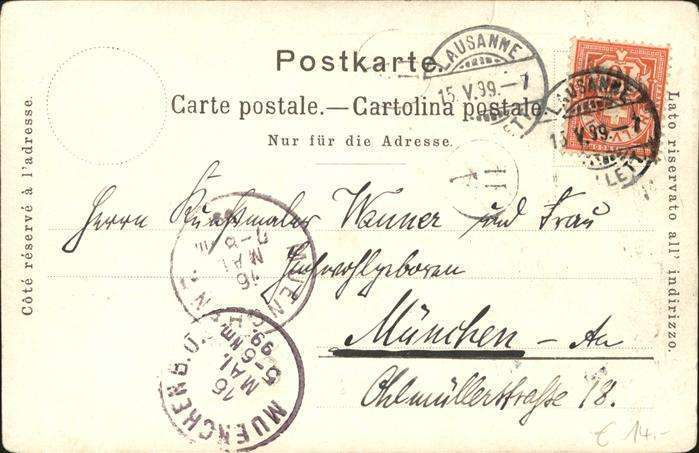 Postkarte.
Carte postale.—Cartolina postale.
Nur für die Adresse.
Côté réservé à l'adresse.
Lato riservato all' indirizzo.
LAUSANNE
15.V.99.–7
LETT.
LAUSANNE
15.V.99.–7
LETT.
Herrn Kunstmaler Wanner und Frau
Hochwohlgeboren
München – Au
Ohlmüllerstraße 18.
MUEN
16
MAI
7–8
MUENCHEN B.O.
16
MAI.
5–6 Nm
99.
€ 14.-